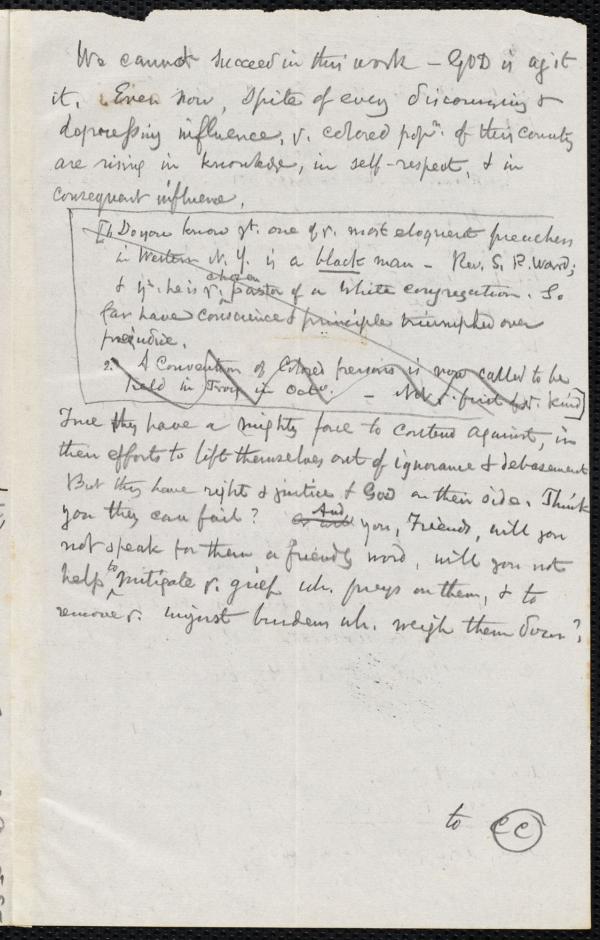 We cannot succeed in this work – GOD is agst
it. Even now, spite of every discouraging &
depressing influence, ye. colored popn. of this country
are rising in knowledge, in self-respect, & in
consequent influence.
[1. Do you know yt. one of ye. most eloquent preachers
in Western N. Y. is a black man – Rev. S. R. Ward;
chosen
& yt. he is ye. pastor of a white congregation. So
far have conscience & principle triumphed over
prejudice.
2. A Convention of Colored persons is now called to be
held in Troy in Octr. – Not ye. first of ye. kind]
True they have a mighty force to contend against, in
their efforts to lift themselves out of ignorance & debasement
But they have right & justice & God on their side. Think
you they can fail? And you, Friends, will you
not speak for them a friendly word, will you not
help to mitigate ye. grief wh. preys on them, & to
remove ye. unjust burdens wh. weigh them down?
to CC